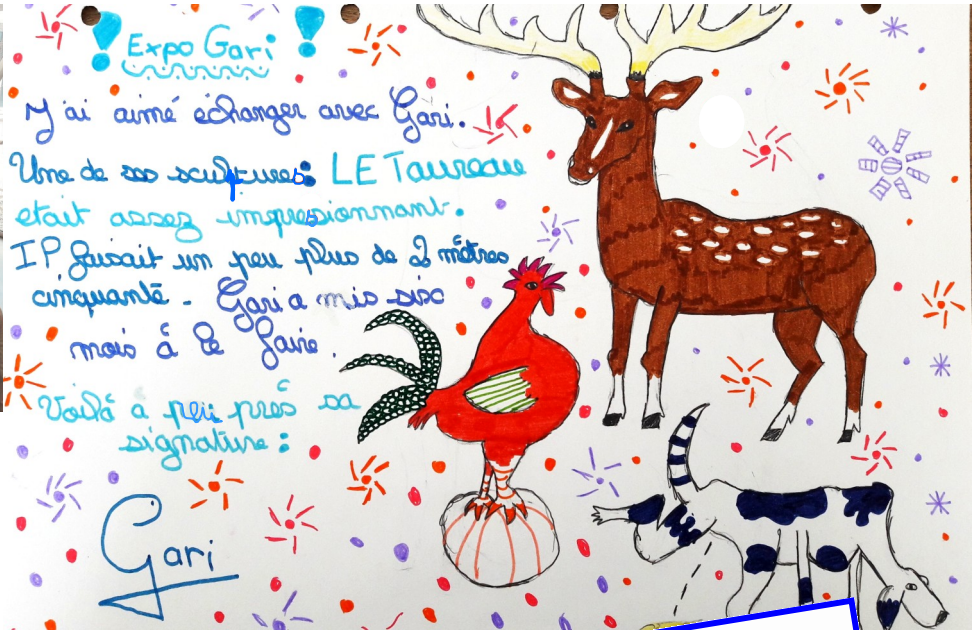 ! Expo Gari !
J'ai aimé échanger avec Gari.
Une de ses sculptures: LE Taureau
était assez impressionnant.
Il faisait un peu plus de 2 mètres
cinquante. Gari a mis six
mois à le faire.
Voilà à peu près sa
signature:
Gari